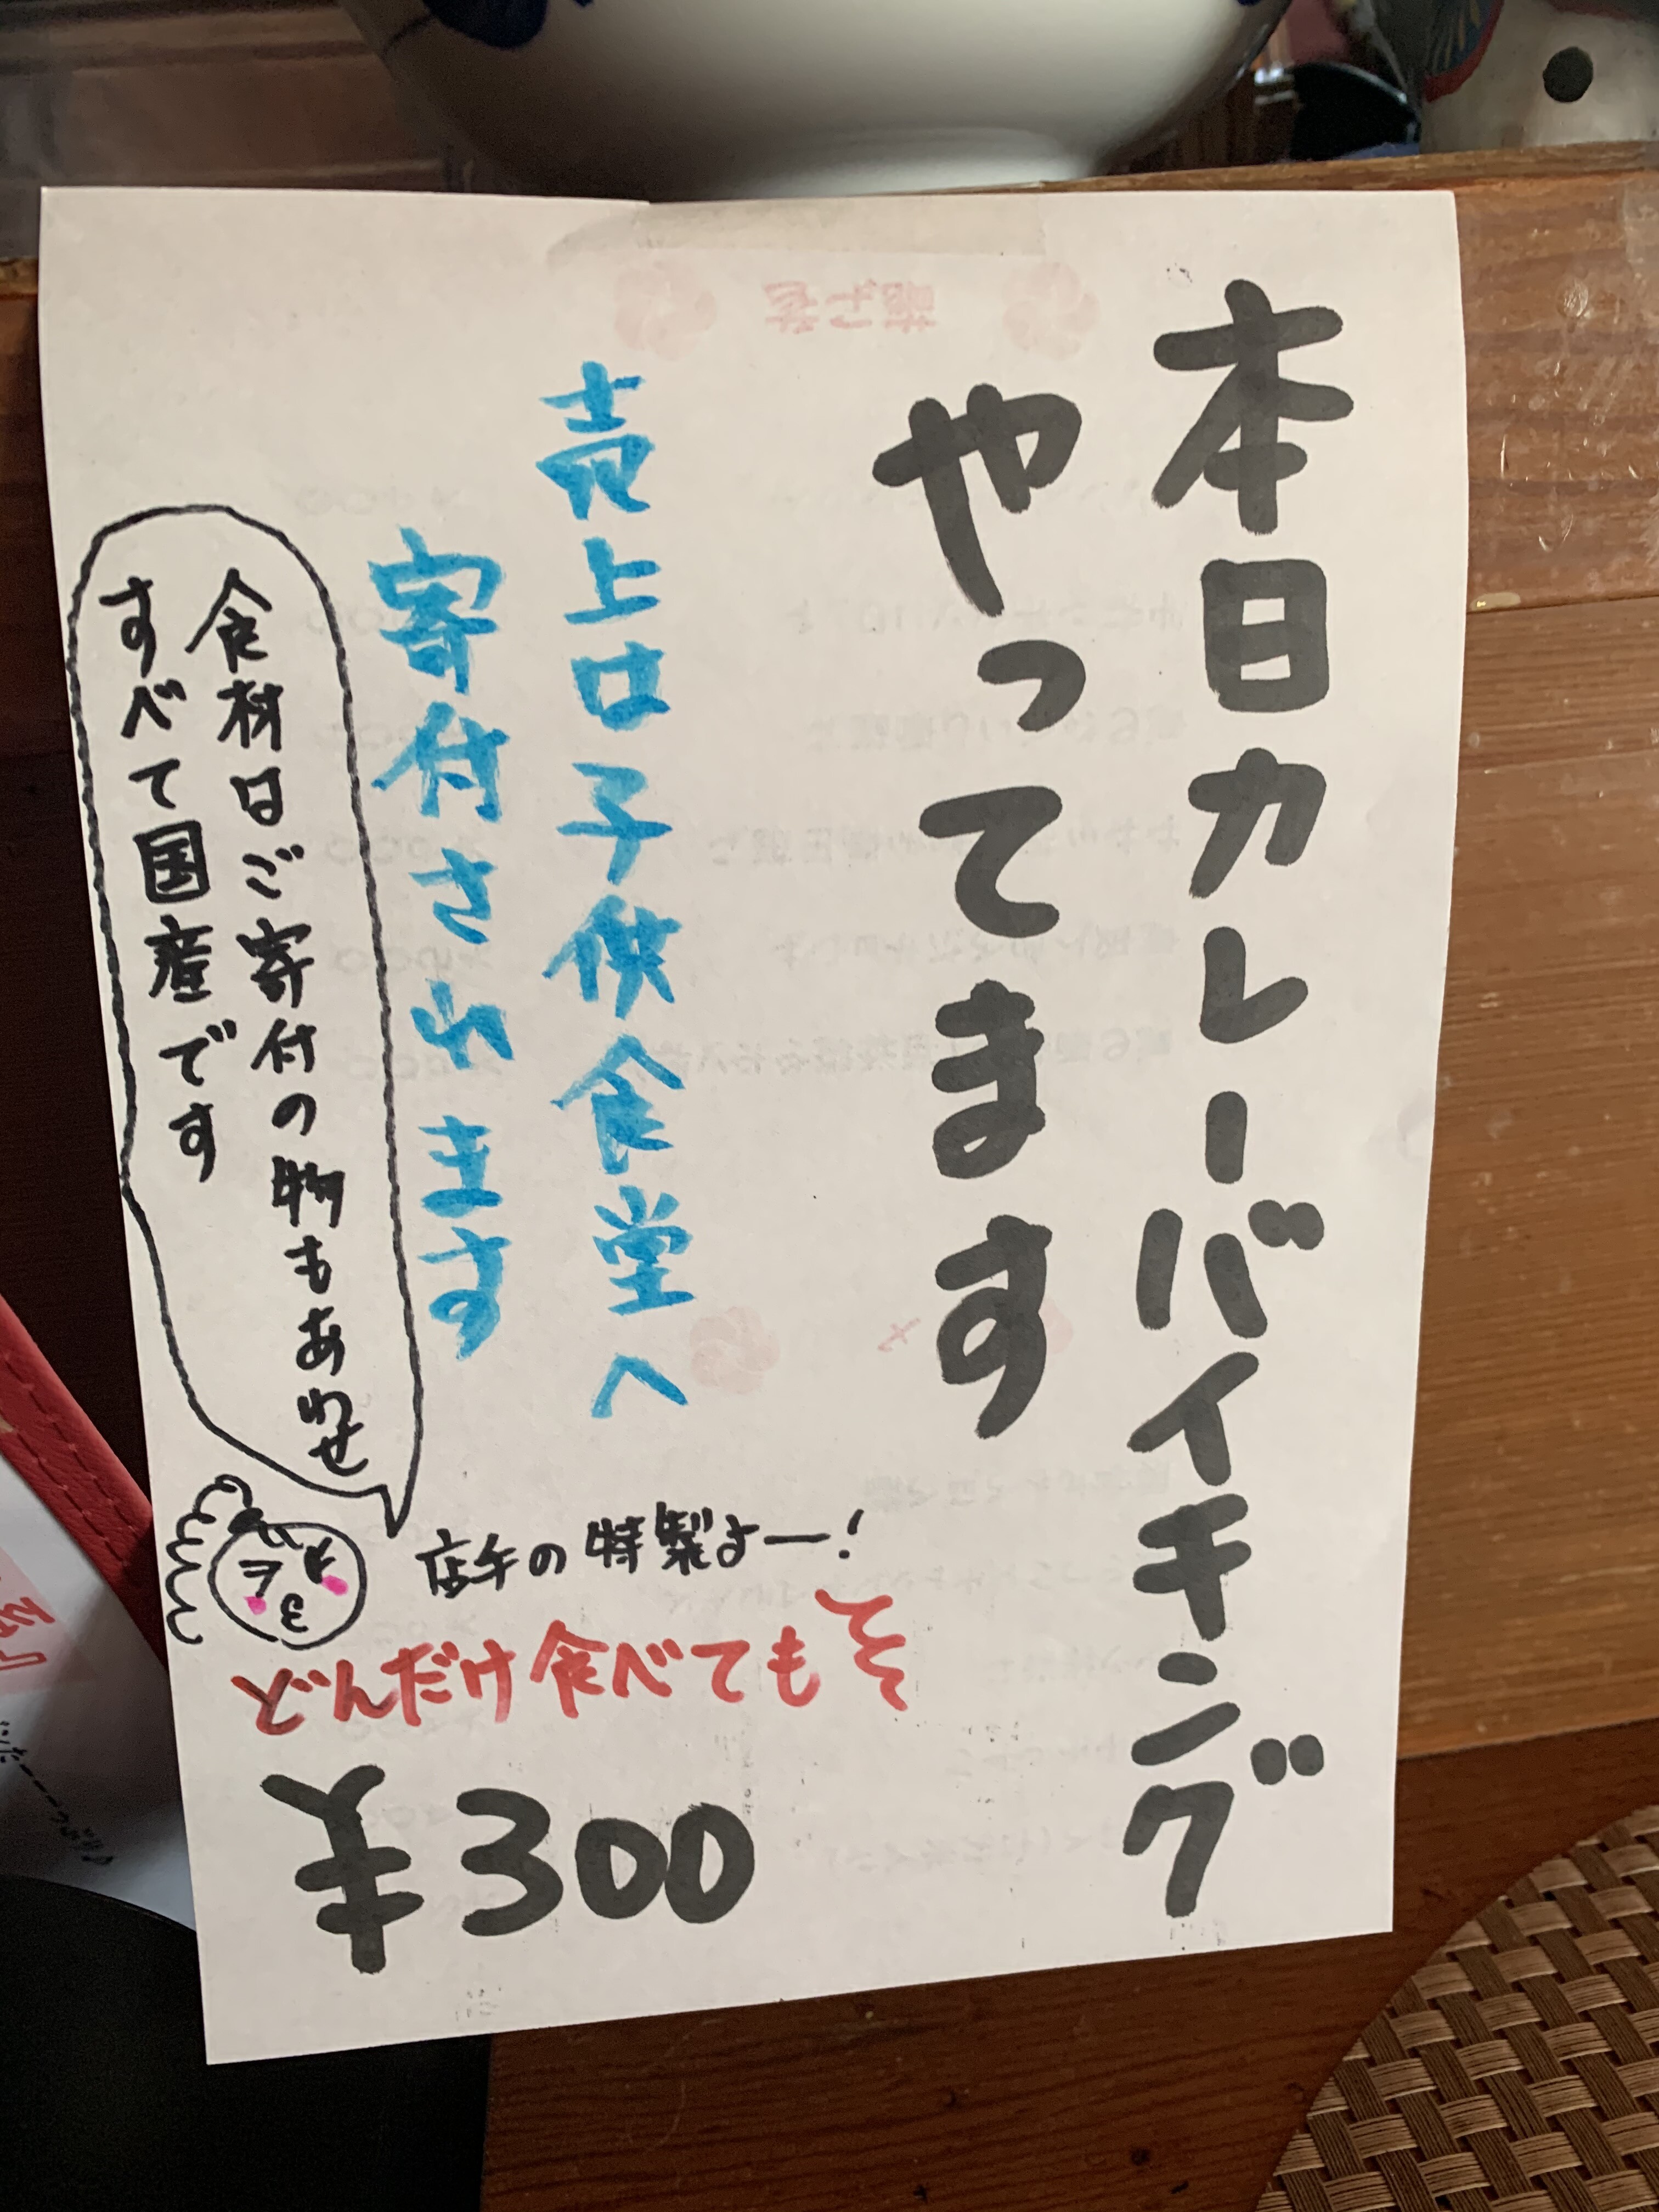 本日カレーバイキング
やってます
売上は子供食堂へ
寄付されます
食材はご寄付の物もあわせ
すべて国産です
店主の特製よー!
どんだけ食べても
¥300